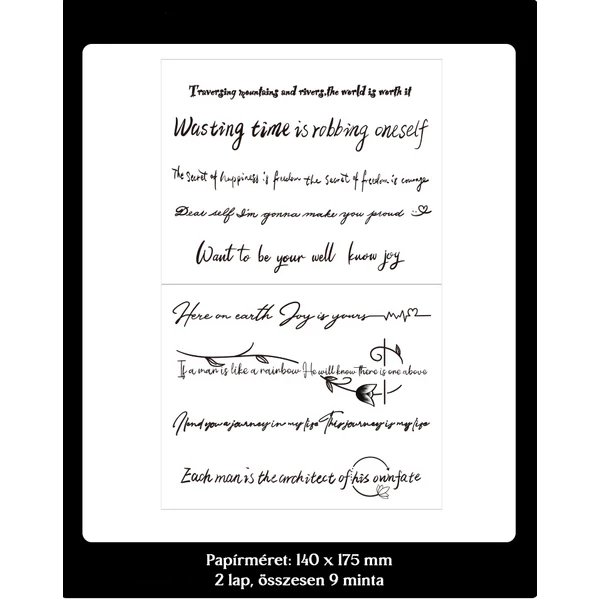 Traversing mountains and rivers,the world is worth it
Wasting time is robbing oneself
The secret of happiness is freedom the secret of freedom is courage
Dear self I'm gonna make you proud
Want to be your well know joy
Here on earth Joy is yours
If a man is like a rainbow He will know there is one above
journey in my life This journey is my life
Each man is the architect of his own fate
Papírméret: 140 x 175 mm
2 lap, összesen 9 minta